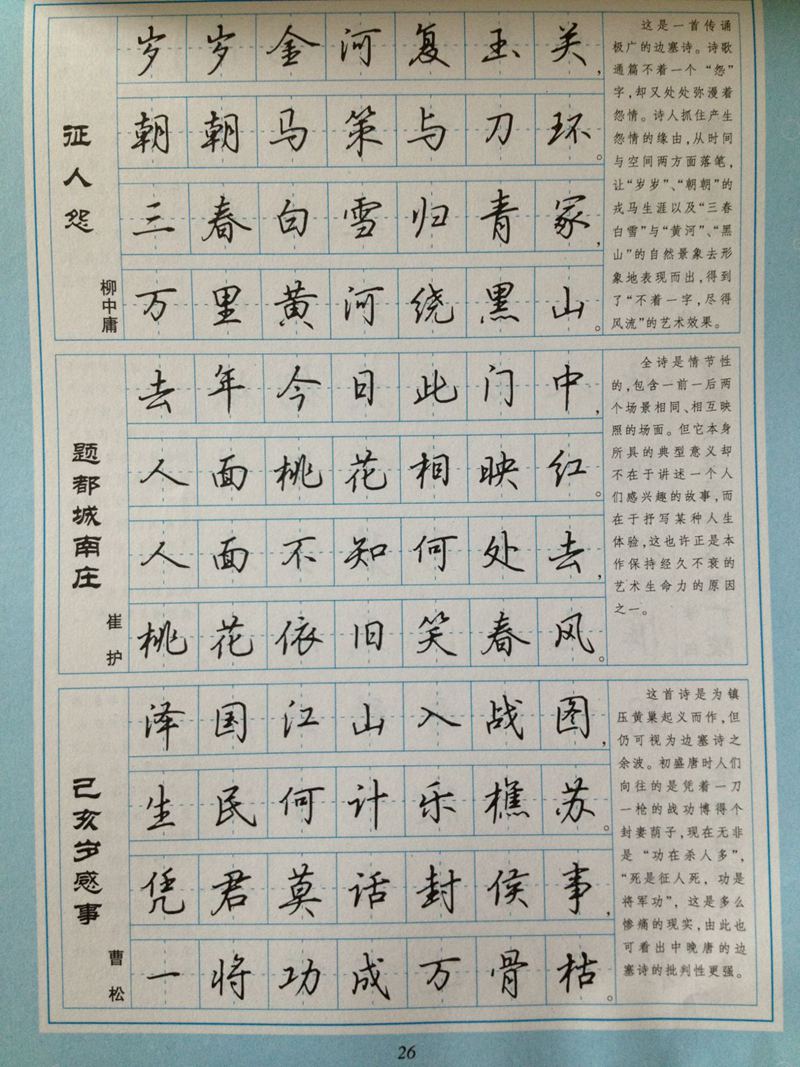 征人怨
柳中庸
岁岁金河复玉关，
朝朝马策与刀环。
三春白雪归青冢，
万里黄河绕黑山。
这是一首传诵
极广的边塞诗。诗歌
通篇不着一个“怨”
字，却又处处弥漫着
怨情。诗人抓住产生
怨情的缘由，从时间
与空间两方面落笔，
让“岁岁”、“朝朝”的
戎马生涯以及“三春
白雪”与“黄河”、“黑
山”的自然景象去形
象地表现而出，得到
了“不着一字，尽得
风流”的艺术效果。
题都城南庄
崔护
去年今日此门中，
人面桃花相映红。
人面不知何处去，
桃花依旧笑春风。
全诗是情节性
的，包含一前一后两
个场景相同、相互映
照的场面。但它本身
所具的典型意义却
不在于讲述一个人
们感兴趣的故事，而
在于抒写某种人生
体验，这也许正是本
作保持经久不衰的
艺术生命力的原因
之一。
己亥岁感事
曹松
泽国江山入战图，
生民何计乐樵苏。
凭君莫话封侯事，
一将功成万骨枯。
这首诗是为镇
压黄巢起义而作，但
仍可视为边塞诗之
余波。初盛唐时人们
向往的是凭着一刀
一枪的战功博得个
封妻荫子，现在无非
是“功在杀人多”，
“死是征人死，功是
将军功”，这是多么
惨痛的现实，由此也
可看出中晚唐的边
塞诗的批判性更强。
26